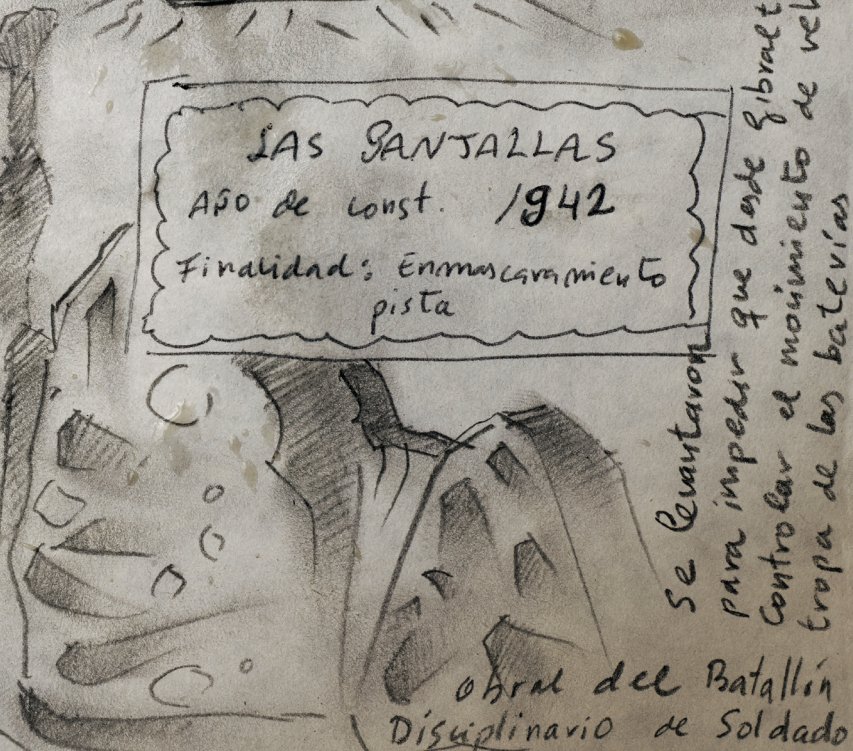 LAS PANTALLAS
AÑO de const. 1942
Finalidad: Enmascaramiento
pista
Se levantaron
para impedir que desde Gibralt
Controlar el movimiento de veh
tropa de las baterías
obral del Batallín
Disciplinario de Soldado